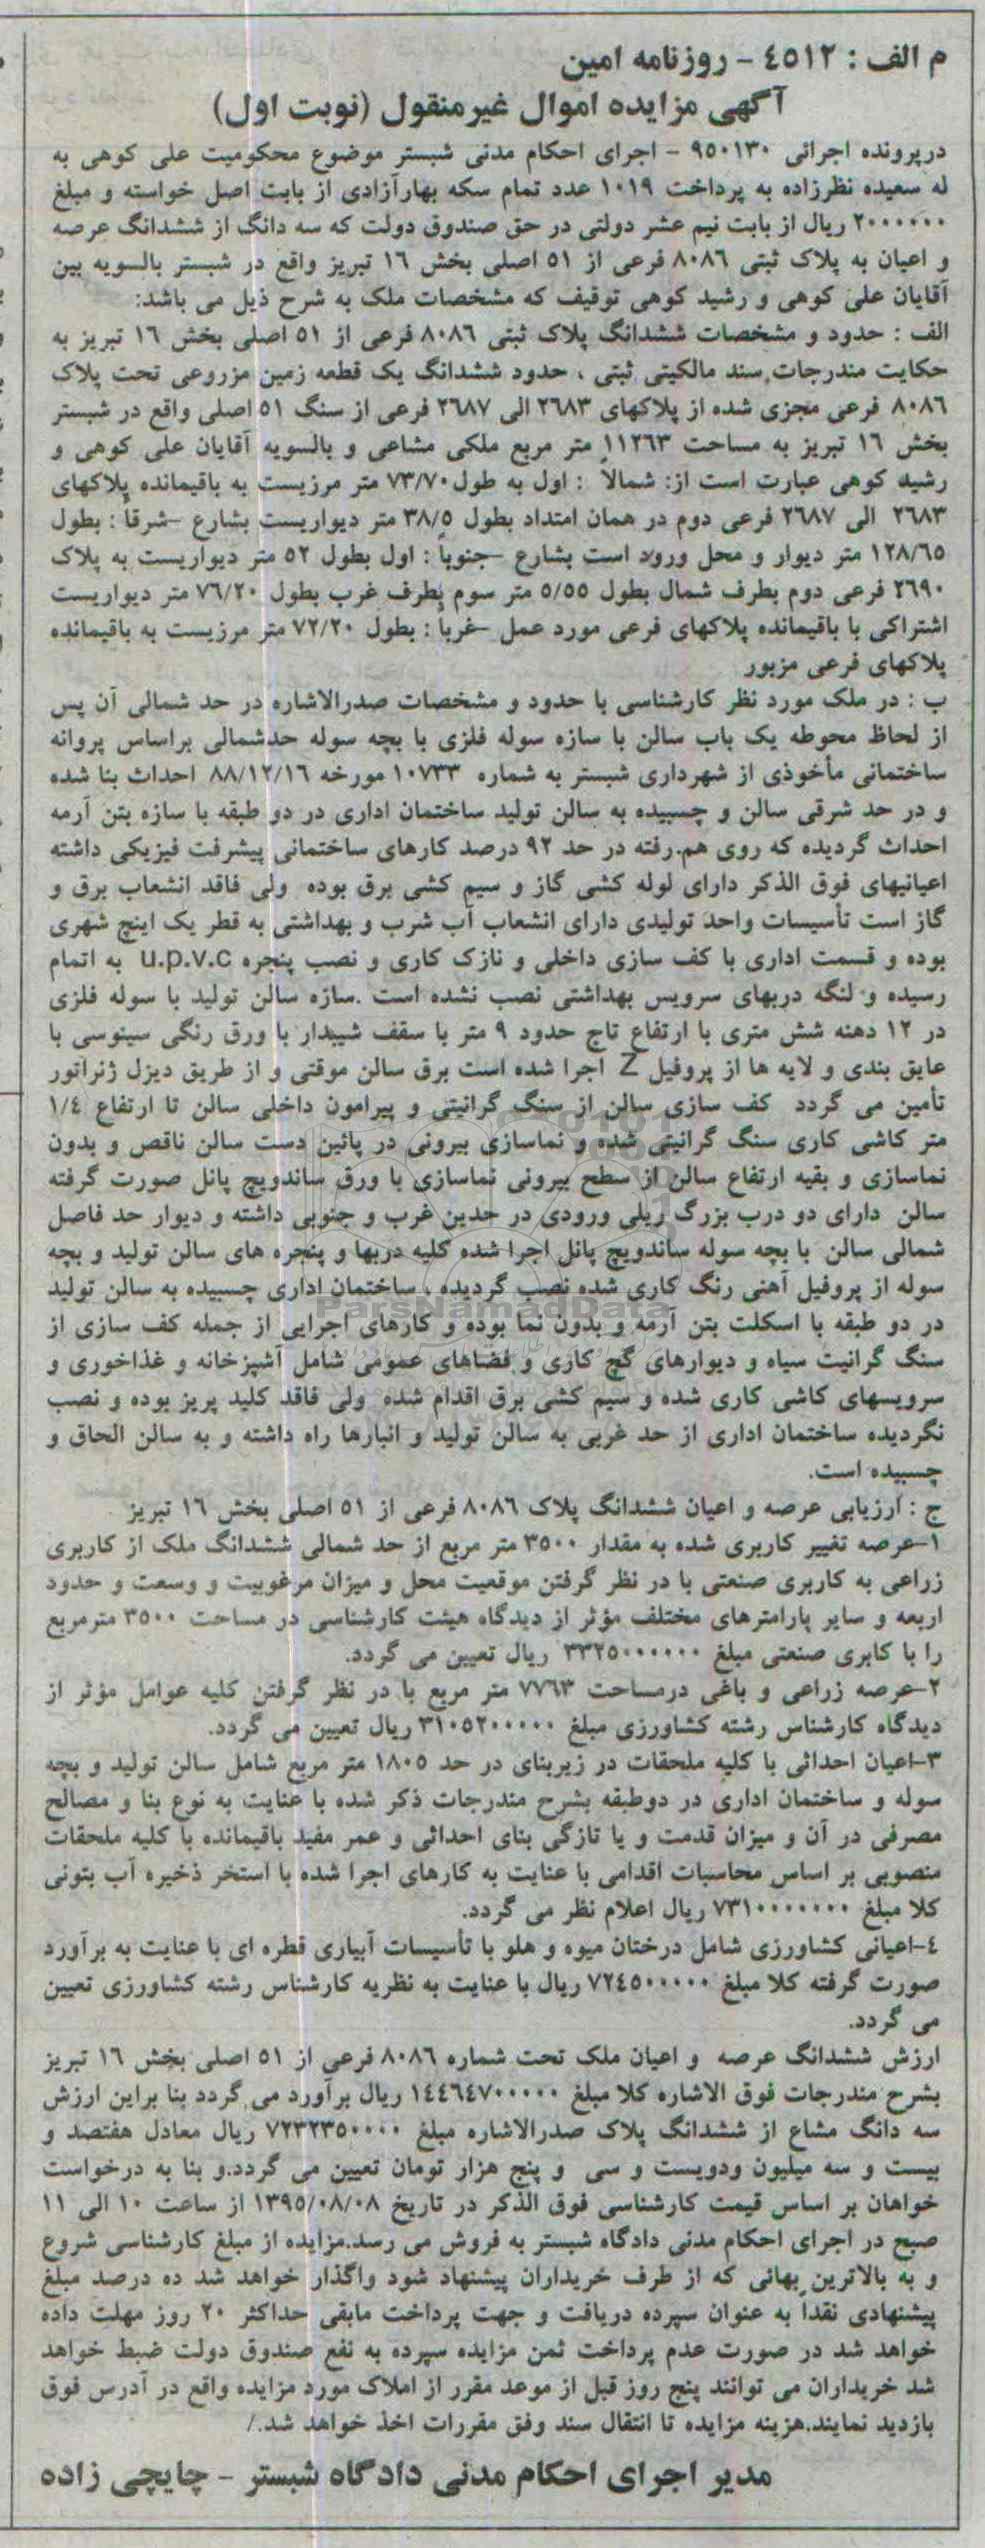 م الف : ٤٥١٢ - روزنامه امین
آگهی مزایده اموال غیرمنقول (نوبت اول)
درپرونده اجرائی ۹۵۰۱۳۰ - اجرای احکام مدنی شبستر موضوع محکومیت علی کوهی به
له سعیده نظرزاده به پرداخت ۱۰۱۹ عدد تمام سکه بهارآزادی از بابت اصل خواسته و مبلغ
۲۰۰۰۰۰۰ ریال از بابت نیم عشر دولتی در حق صندوق دولت که سه دانگ از ششدانگ عرصه
و اعیان به پلاک ثبتی ۸۰۸۶ فرعی از ۵۱ اصلی بخش ۱۶ تبریز واقع در شبستر بالسویه بین
آقایان علی کوهی و رشید کوهی توقیف که مشخصات ملک به شرح ذیل می باشد:
الف : حدود و مشخصات ششدانگ پلاک ثبتی ۸۰۸۶ فرعی از ۵۱ اصلی بخش ۱۶ تبریز به
حکایت مندرجات سند مالکیتی ثبتی ، حدود ششدانگ یک قطعه زمین مزروعی تحت پلاک
۸۰۸۶ فرعی مجزی شده از پلاکهای ۲۶۸۳ الی ۲۶۸۷ فرعی از سنگ ۵۱ اصلی واقع در شبستر
بخش ۱۶ تبریز به مساحت ۱۱۲۶۳ متر مربع ملکی مشاعی و بالسویه آقایان علی کوهی و
رشید کوهی عبارت است از: شمالاً : اول به طول ۷۳/۷۰ متر مرزیست به باقیمانده پلاکهای
۲۶۸۳ الی ۲۶۸۷ فرعی دوم در همان امتداد بطول ۳۸/۵ متر دیواریست بشارع –شرقاً : بطول
۱۲۸/۶۵ متر دیوار و محل ورود است بشارع –جنوباً : اول بطول ۵۲ متر دیواریست به پلاک
۲۶۹۰ فرعی دوم بطرف شمال بطول ۵/۵۵ متر سوم بطرف غرب بطول ۷۶/۲۰ متر دیواریست
اشتراکی با باقیمانده پلاکهای فرعی مورد عمل –غرباً : بطول ۷۲/۲۰ متر مرزیست به باقیمانده
پلاکهای فرعی مزبور
ب : در ملک مورد نظر کارشناسی با حدود و مشخصات صدرالاشاره در حد شمالی آن پس
از لحاظ محوطه یک باب سالن با سازه سوله فلزی با بچه سوله حدشمالی براساس پروانه
ساختمانی مأخوذی از شهرداری شبستر به شماره ۱۰۷۳۳ مورخه ۸۸/۱۲/۱۶ احداث بنا شده
و در حد شرقی سالن و چسبیده به سالن تولید ساختمان اداری در دو طبقه با سازه بتن آرمه
احداث گردیده که روی هم.رفته در حد ۹۲ درصد کارهای ساختمانی پیشرفت فیزیکی داشته
اعیانیهای فوق الذکر دارای لوله کشی گاز و سیم کشی برق بوده ولی فاقد انشعاب برق و
گاز است تأسیسات واحد تولیدی دارای انشعاب آب شرب و بهداشتی به قطر یک اینچ شهری
بوده و قسمت اداری با کف سازی داخلی و نازک کاری و نصب پنجره u.p.v.c به اتمام
رسیده و لنگه دربهای سرویس بهداشتی نصب نشده است .سازه سالن تولید با سوله فلزی
در ۱۲ دهنه شش متری با ارتفاع تاج حدود ۹ متر با سقف شیبدار با ورق رنگی سینوسی با
عایق بندی و لایه ها از پروفیل Z اجرا شده است برق سالن موقتی و از طریق دیزل ژنراتور
تأمین می گردد کف سازی سالن از سنگ گرانیتی و پیرامون داخلی سالن تا ارتفاع ۱/٤
متر کاشی کاری سنگ گرانیتی شده و نماسازی بیرونی در پائین دست سالن ناقص و بدون
نماسازی و بقیه ارتفاع سالن از سطح بیرونی نماسازی با ورق ساندویچ پانل صورت گرفته
سالن دارای دو درب بزرگ ریلی ورودی در حدین غرب و جنوبی داشته و دیوار حد فاصل
شمالی سالن با بچه سوله ساندویچ پانل اجرا شده کلیه دربها و پنجره های سالن تولید و بچه
سوله از پروفیل آهنی رنگ کاری شده نصب گردیده . ساختمان اداری چسبیده به سالن تولید
ParsNamadData
در دو طبقه با اسکلت بتن آرمه و بدون نما بوده و کارهای اجرایی از جمله کف سازی از
سنگ گرانیت سیاه و دیوارهای گچ کاری و فضاهای عمومی شامل آشپزخانه و غذاخوری و
سرویسهای کاشی کاری شده و سیم کشی برق اقدام شده ولی فاقد کلید پریز بوده و نصب
نگردیده ساختمان اداری از حد غربی به سالن تولید و انبارها راه داشته و به سالن الحاق و
چسبیده است.
ج : ارزیابی عرصه و اعیان ششدانگ پلاک ۸۰۸۶ فرعی از ۵۱ اصلی بخش ۱۶ تبریز
۱–عرصه تغییر کاربری شده به مقدار ۳۵۰۰ متر مربع از حد شمالی ششدانگ ملک از کاربری
زراعی به کاربری صنعتی با در نظر گرفتن موقعیت محل و میزان مرغوبیت و وسعت و حدود
اربعه و سایر پارامترهای مختلف مؤثر از دیدگاه هیئت کارشناسی در مساحت ۳۵۰۰ مترمربع
را با کابری صنعتی مبلغ ۳۳۲۵۰۰۰۰۰۰ ریال تعیین می گردد.
۲–عرصه زراعی و باغی درمساحت ۷۷۶۳ متر مربع با در نظر گرفتن کلیه عوامل مؤثر از
دیدگاه کارشناس رشته کشاورزی مبلغ ۳۱۰۵۲۰۰۰۰۰ ریال تعیین می گردد.
۳–اعیان احداثی با کلیه ملحقات در زیربنای در حد ۱۸۰۵ متر مربع شامل سالن تولید و بچه
سوله و ساختمان اداری در دوطبقه بشرح مندرجات ذکر شده با عنایت به نوع بنا و مصالح
مصرفی در آن و میزان قدمت و یا تازگی بنای احداثی و عمر مفید باقیمانده با کلیه ملحقات
منصوبی بر اساس محاسبات اقدامی با عنایت به کارهای اجرا شده با استخر ذخیره آب بتونی
کلا مبلغ ۷۳۱۰۰۰۰۰۰۰ ریال اعلام نظر می گردد.
٤–اعیانی کشاورزی شامل درختان میوه و هلو با تأسیسات آبیاری قطره ای با عنایت به برآورد
صورت گرفته کلا مبلغ ۷۲٤۵۰۰۰۰۰ ریال با عنایت به نظریه کارشناس رشته کشاورزی تعیین
می گردد.
ارزش ششدانگ عرصه و اعیان ملک تحت شماره ۸۰۸۶ فرعی از ۵۱ اصلی بخش ۱۶ تبریز
بشرح مندرجات فوق الاشاره کلا مبلغ ۱٤٤۶٤۷۰۰۰۰۰ ریال برآورد می گردد بنا براین ارزش
سه دانگ مشاع از ششدانگ پلاک صدرالاشاره مبلغ ۷۲۳۲۳۵۰۰۰۰ ریال معادل هفتصد و
بیست و سه میلیون ودویست و سی و پنج هزار تومان تعیین می گردد.و بنا به درخواست
خواهان بر اساس قیمت کارشناسی فوق الذکر در تاریخ ۱۳۹۵/۰۸/۰۸ از ساعت ۱۰ الی ۱۱
صبح در اجرای احکام مدنی دادگاه شبستر به فروش می رسد.مزایده از مبلغ کارشناسی شروع
و به بالاترین بهائی که از طرف خریداران پیشنهاد شود واگذار خواهد شد ده درصد مبلغ
پیشنهادی نقداً به عنوان سپرده دریافت و جهت پرداخت مابقی حداکثر ۲۰ روز مهلت داده
خواهد شد در صورت عدم پرداخت ثمن مزایده سپرده به نفع صندوق دولت ضبط خواهد
شد خریداران می توانند پنج روز قبل از موعد مقرر از املاک مورد مزایده واقع در آدرس فوق
بازدید نمایند.هزینه مزایده تا انتقال سند وفق مقررات اخذ خواهد شد./
مدیر اجرای احکام مدنی دادگاه شبستر - چایچی زاده